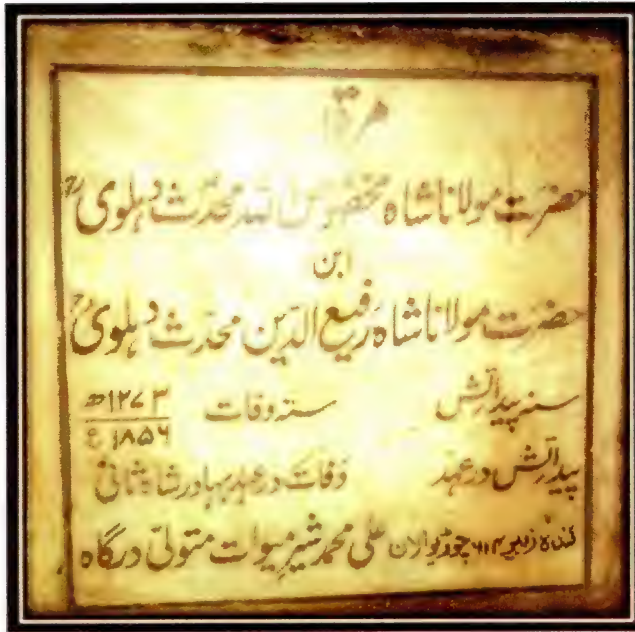 مرقد
حضرت مولانا شاہ مخصوص اللہ محدث دہلویؒ
ابن
حضرت مولانا شاہ رفیع الدین محدث دہلویؒ
سنہ پیدائش سنہ وفات ۱۲۷۳ھ
۱۸۵۶ع
پیدائش در عہد وفات در عہد بہادر شاہ ثانی
کندہ زبیر ۶۱۴ چوڑیوالان علی محمد شیرِ میوات متولی درگاہ